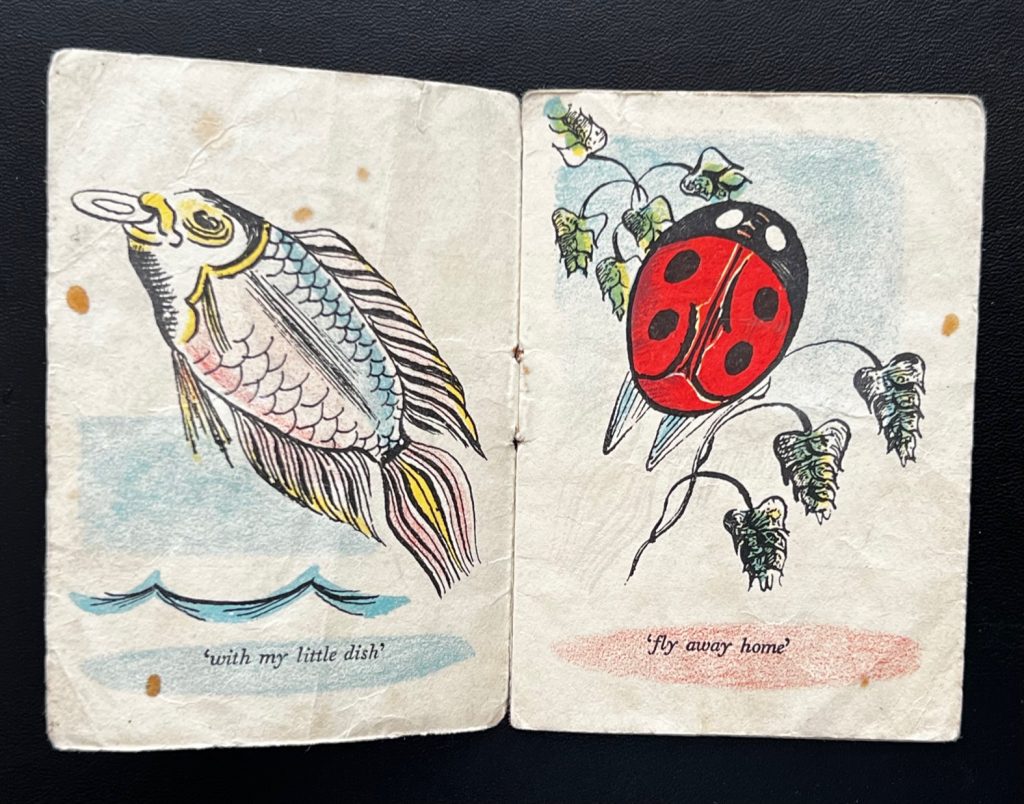 ‘with my little dish’
‘fly away home’